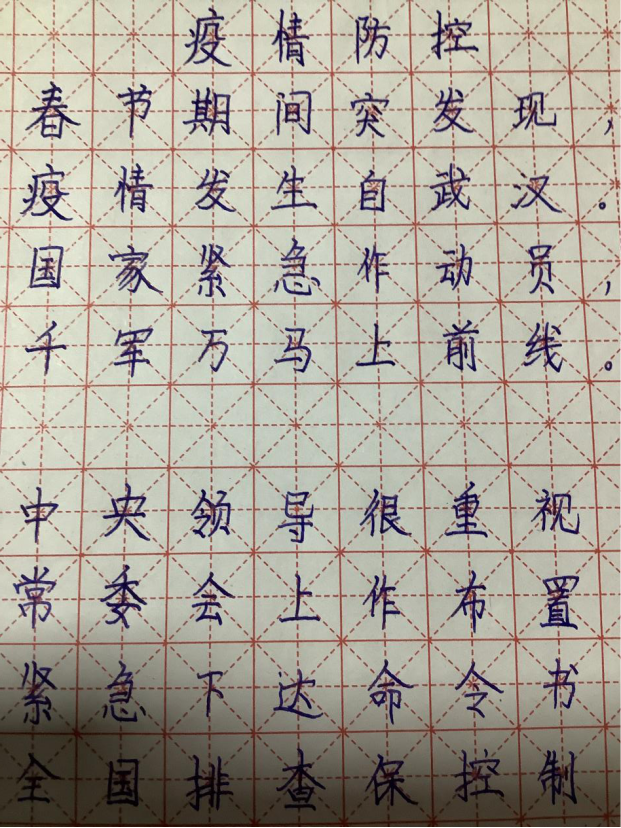 疫情防控
春节期间突发现，
疫情发生自武汉。
国家紧急作动员，
千军万马上前线。
中央领导很重视
常委会上作布置
紧急下达命令书
全国排查保控制